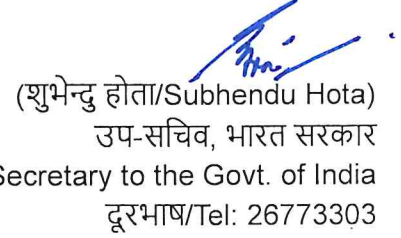 (शुभेन्दु होता/Subhendu Hota)
उप-सचिव, भारत सरकार
Secretary to the Govt. of India
दूरभाष/Tel: 26773303